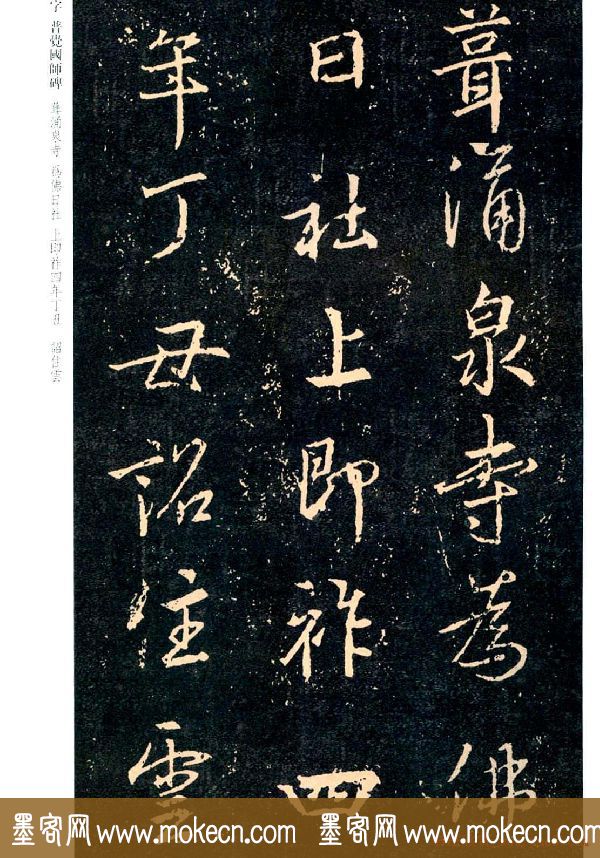 葺涌泉寺為佛
日社上即祚四
年丁丑詔住雲
字 普覺國師碑 葺涌泉寺 為佛日社 上即祚四年丁丑 詔住雲
墨客网 www.mokecn.com 墨客网 www.mokecn.com